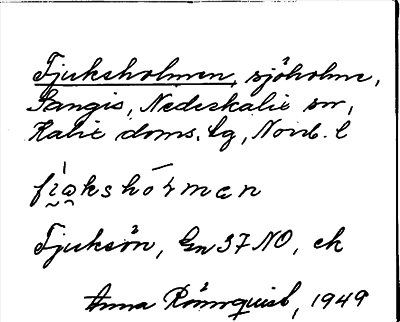 Fjuksholmen, sjöholme,
Sangis, Nederkalix sn,
Kalix doms. tg, Norrb. l
Fjuksön, Gn 37 NO, ek
Anna Rönnquist, 1949